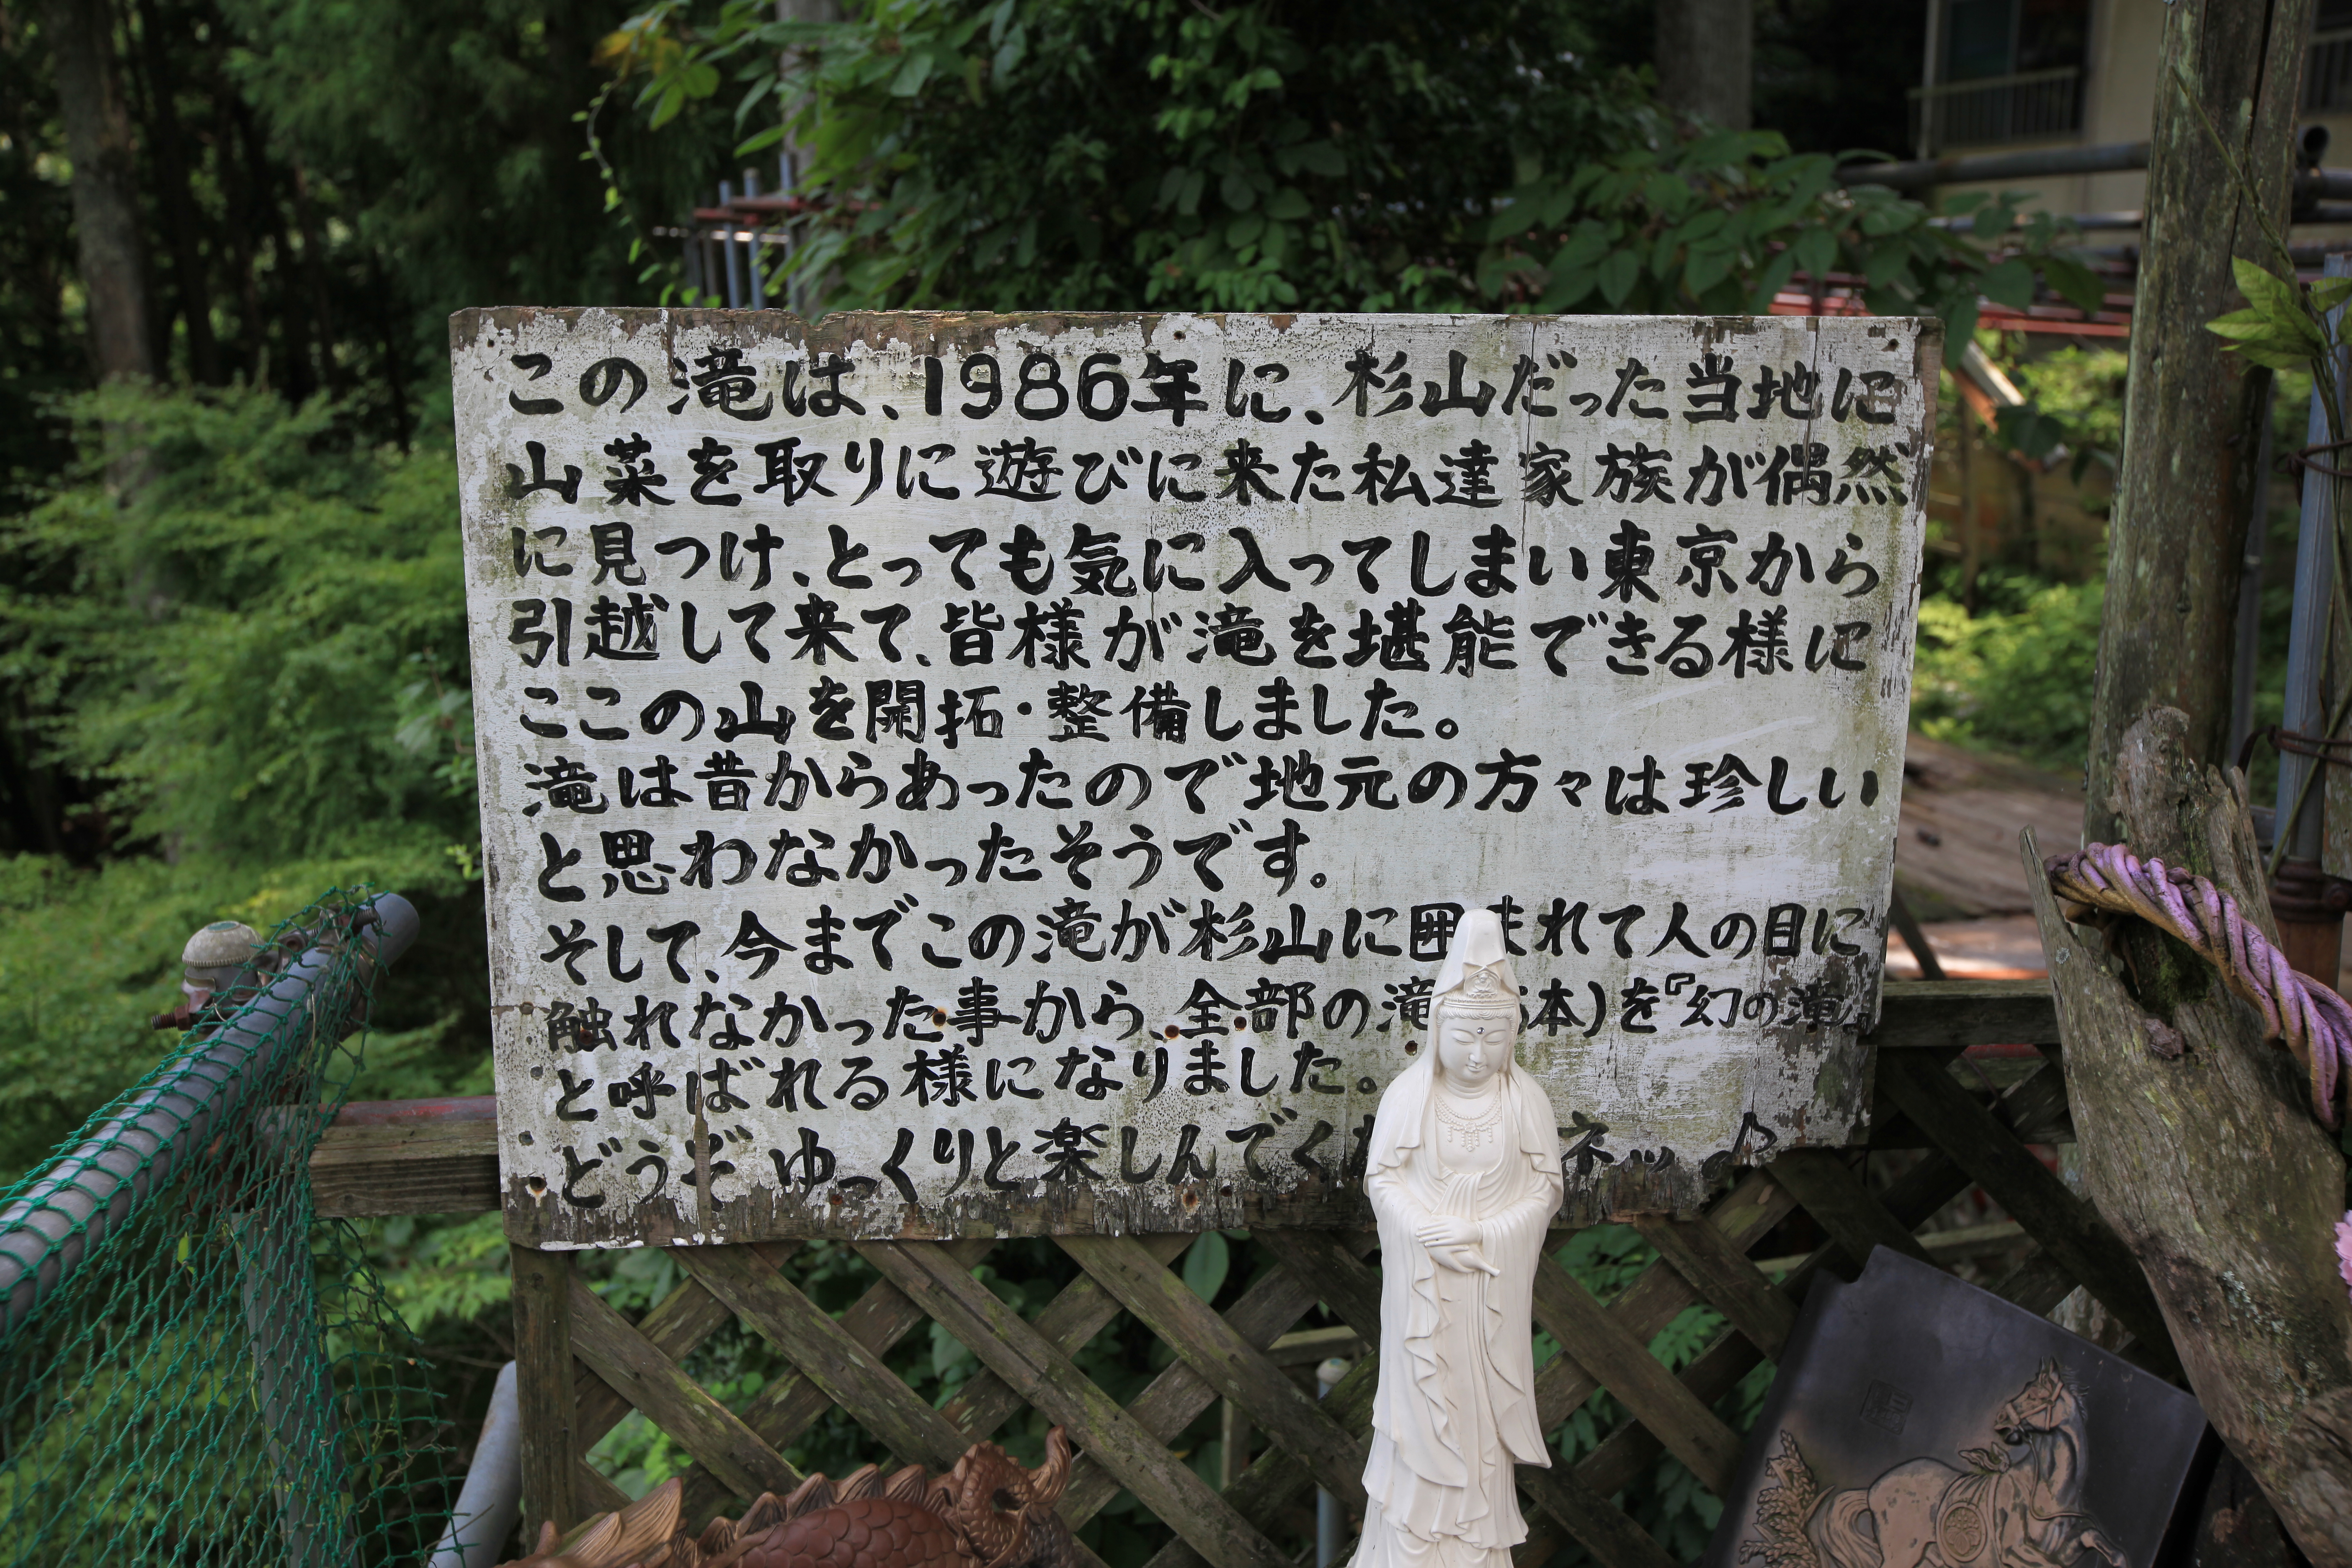 この滝は、1986年に、杉山だった当地に
山菜を取りに遊びに来た私達家族が偶然
に見つけ、とっても気に入ってしまい東京から
引越して来て、皆様が滝を堪能できる様に
ここの山を開拓・整備しました。
滝は昔からあったので地元の方々は珍しい
と思わなかったそうです。
そして、今までこの滝が杉山に囲まれて人の目に
触れなかった事から、全部の滝 本)を『幻の滝』
と呼ばれる様になりました。
どうぞゆっくりと楽しんでく ネッ♪